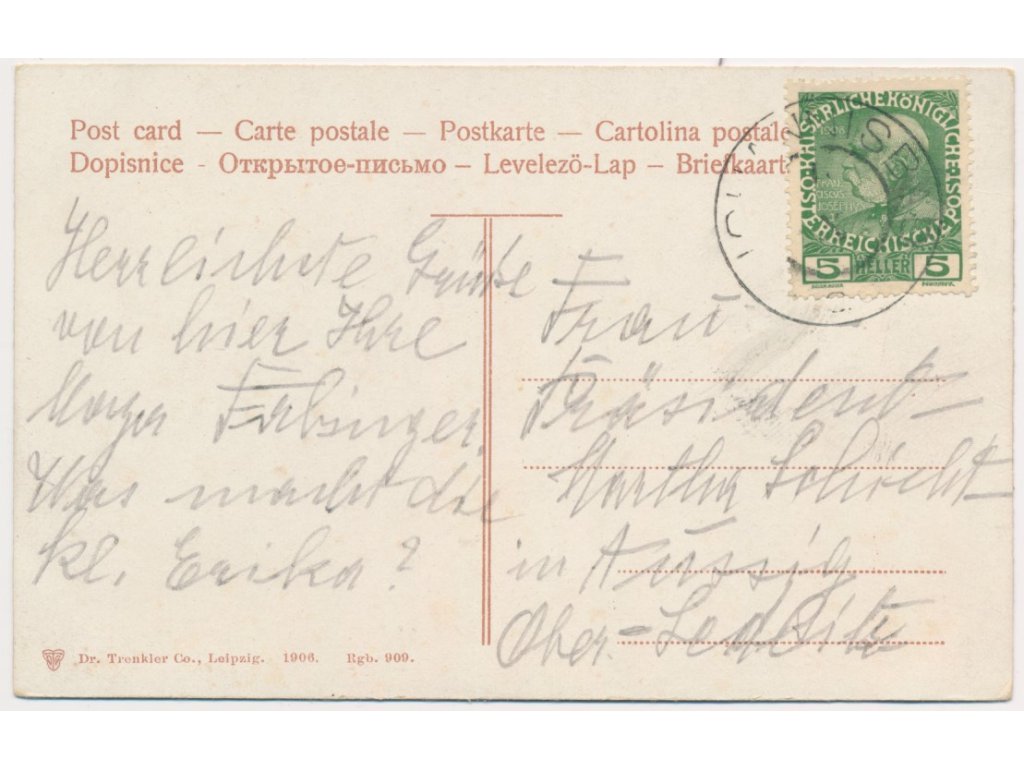 Post card — Carte postale — Postkarte — Cartolina postale
Dopisnice - Открытое-письмо — Levelező-Lap — Briefkaart
ÖSTERREICHISCHE POST KAISERLICHEKÖNIGLICHE
1908
FRAN
CISCVS
IOSEPHVS
5 HELLER 5
Herrlichste Grüße
von hier Ihre
Fabinger.
Was macht die
kl. Erika?
Frau
Präsident
Martha Schicht
in Aussig
Ober-
Dr. Trenkler Co., Leipzig. 1906. Rgb. 909.